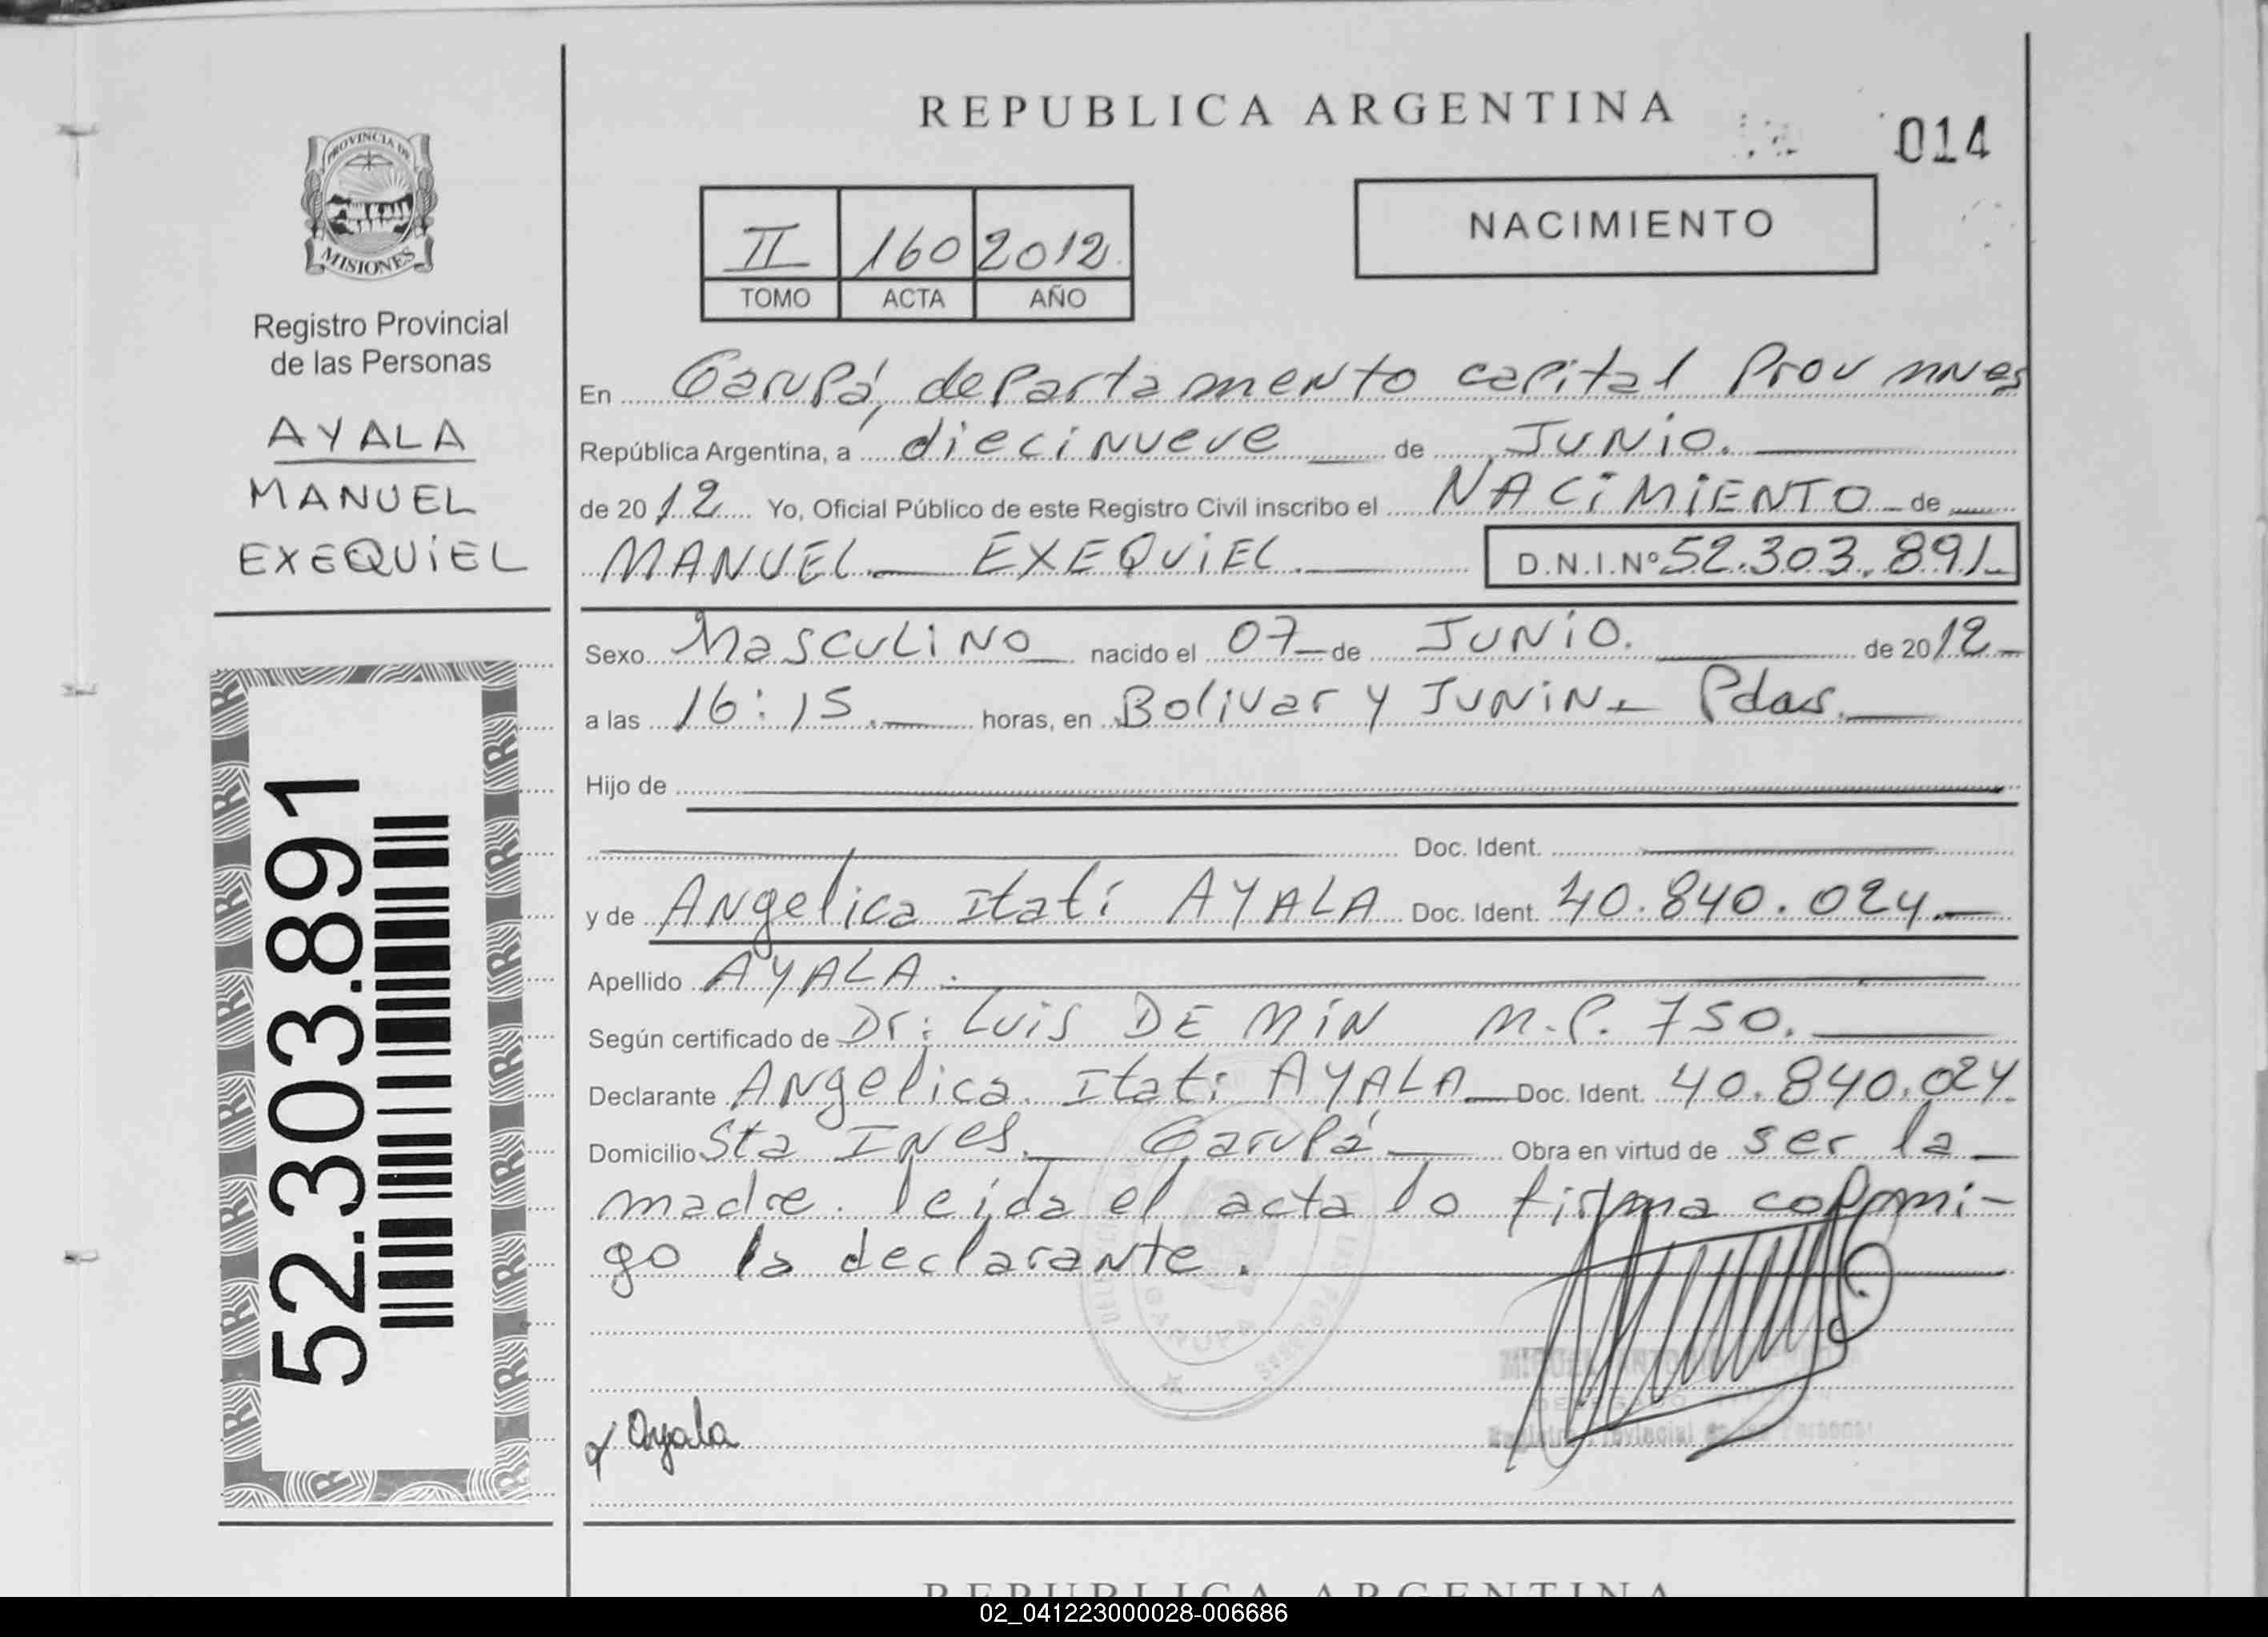 REPUBLICA ARGENTINA
014
PROVINCIA DE
MISIONES
Registro Provincial
de las Personas
AYALA
MANUEL
EXEQUIEL
52.303.891
II 160 2012
TOMO ACTA AÑO
NACIMIENTO
En Garupá, departamento capital Prov mnes
República Argentina, a diecinueve de Junio.
de 2012 Yo, Oficial Público de este Registro Civil inscribo el NACIMIENTO de
MANUEL EXEQUIEL. D.N.I.Nº 52.303.891
Sexo Masculino nacido el 07 de JUNIO. de 2012
a las 16:15. horas, en Bolivar y JUNIN Pdas.
Hijo de
Doc. Ident.
y de Angelica Itati AYALA Doc. Ident. 40.840.024.
Apellido AYALA.
Según certificado de Dr: Luis DE MIN M.P. 750.
Declarante Angelica Itati AYALA Doc. Ident. 40.840.024.
Domicilio Sta INES. Garupá Obra en virtud de ser la
madre. leida el acta lo firma conmi-
go la declarante.
GARUPA
Ayala
Registro Provincial de las Personas
REPUBLICA ARGENTINA
02_041223000028-006686